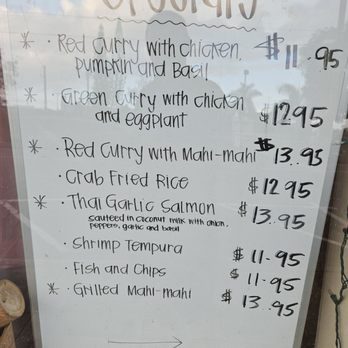 * · Red Curry with chicken, $11.95
pumpkin and Basil
* · Green Curry with chicken $12.95
and eggplant
* · Red Curry with Mahi-mahi $13.95
· Crab Fried Rice $12.95
* · Thai Garlic Salmon $13.95
sauteed in coconut milk with onion,
peppers, garlic and basil
· Shrimp Tempura $11.95
· Fish and Chips $11.95
* · Grilled Mahi-mahi $13.95